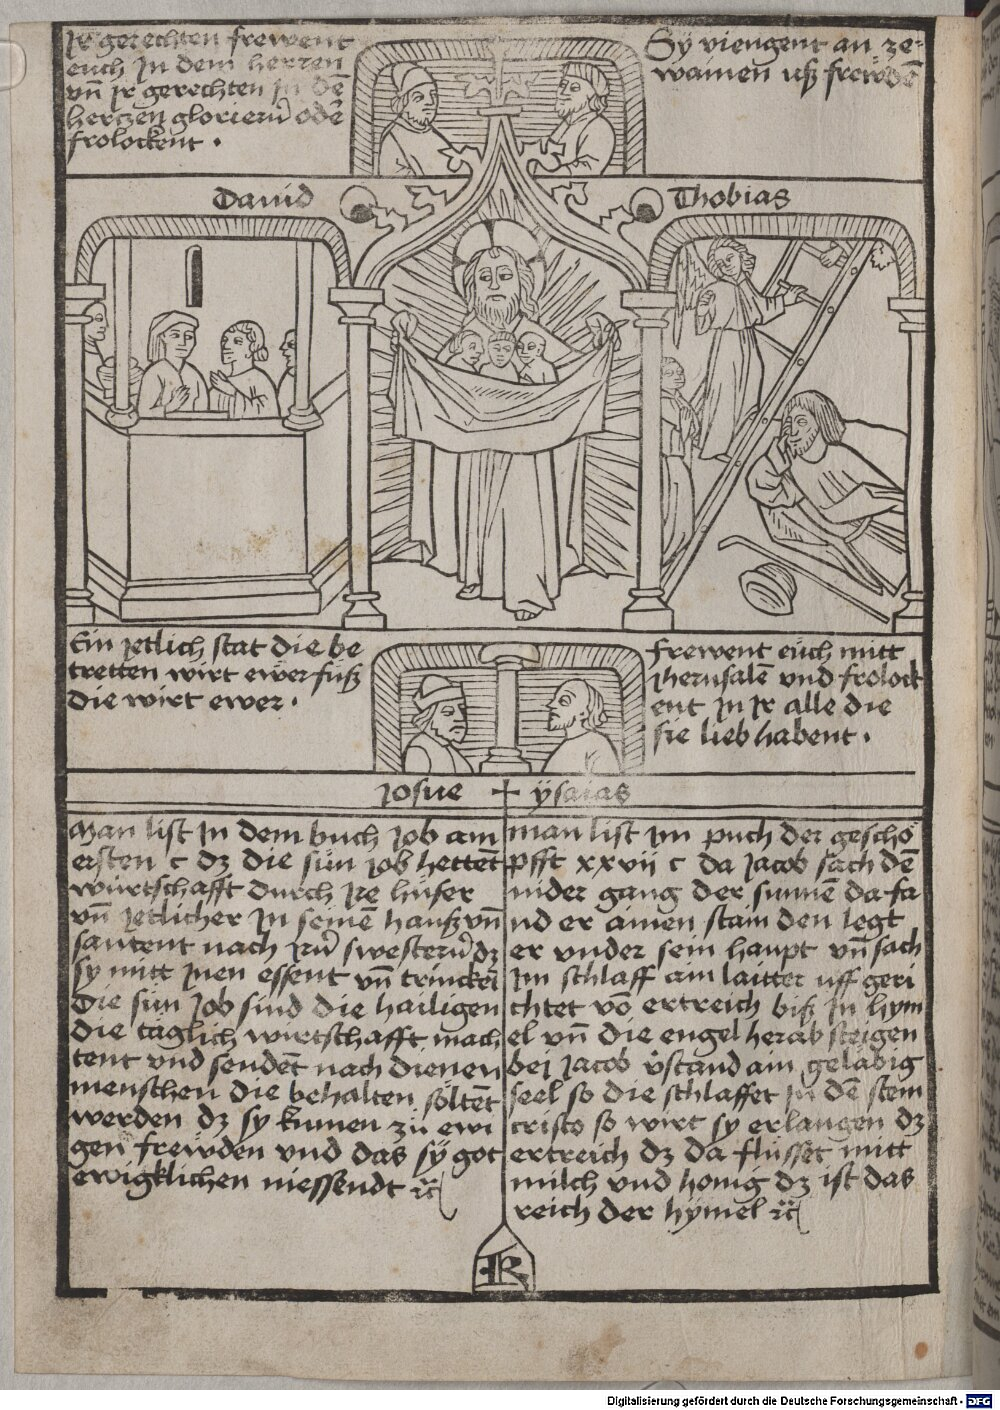 Ir gerechten frewent
euch In dem herren
vn̄ Ir gerechten In dē
hertzen glorierñ odē
frolockent .
Sÿ viengent an ze=
wainen uſz frewdē
Dauid
Thobias
Ein ietlich stat die be
tretten wirt ewer fuſz
die wirt ewer .
frewent eüch mitt
Iherusalē vnd frolock
ent In Ir alle die
sie lieb habent .
Josue ÿsaias
Man list In dem buch Job am
ersten c dz die sün Job hettēt
würtschafft durch Ire hüser
vn̄ Ietlicher In seinē hauſz vn̄
santent nach Irñ swesterñ dz
sy mitt Inen essent vn̄ trinckēt
Die sün Job sind die hailigen
die täglich wirtschafft mach
tent vnd sendēt nach dienen
menschen die behalten söltēt
werden dz sy kumen zü ewi
gen frewden vnd das sÿ got
ewigklichen niessendt ꝛc̄
man list Im puch der geschö
pfft xxvii c da Jacob sach dē
nider gang der sunnē da fa
nd er ainen stain den legt
er vnder sein haupt vn̄ sach
Im schlaff ain laitter uff geri
chtet vō ertreich biſz In hym
el vn̄ die engel herab steigen
bei Jacob v̄stand ain geläbig
seel so die schlaffet In dē stein
cristo so wirt sy erlangen dz
ertreich dz da flüsset mitt
milch vnd honig dz ist das
reich der hymel ꝛc̄
.k.
Digitalisierung gefördert durch die Deutsche Forschungsgemeinschaft - DFG